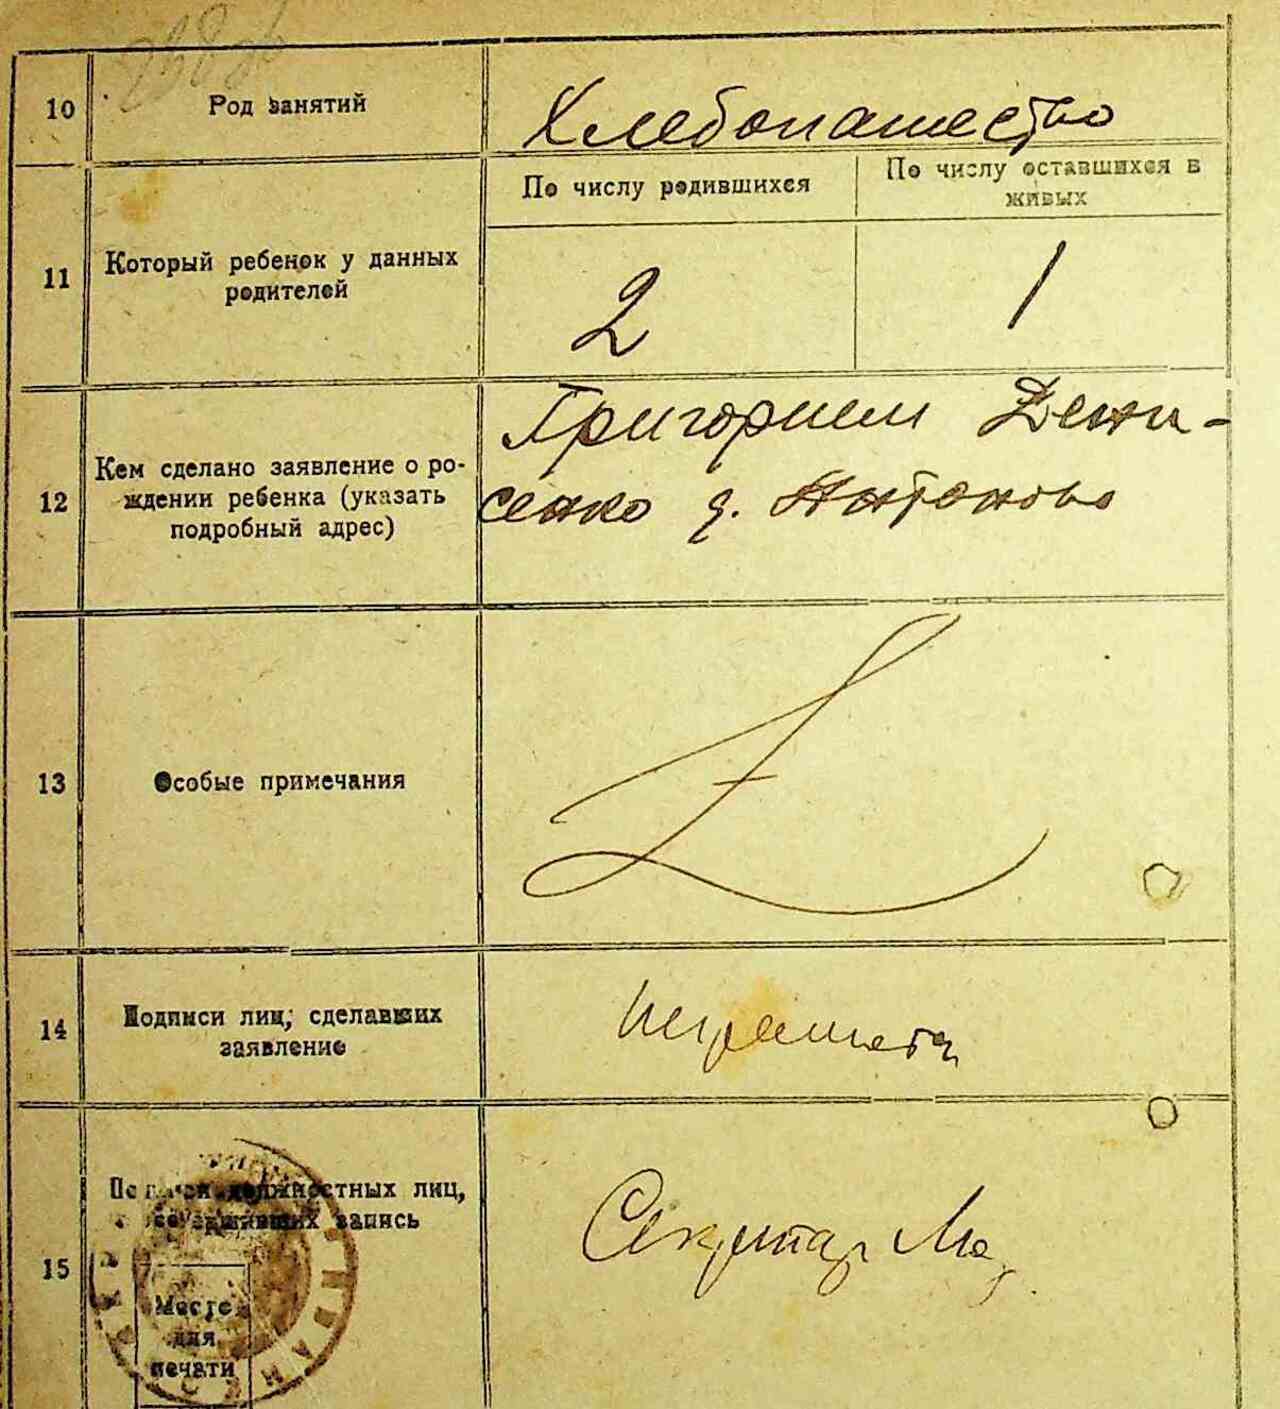 10 Род занятий Хлебопашество
11 Который ребенок у данных
родителей
По числу родившихся
2
По числу оставшихся в
живых
1
12 Кем сделано заявление о ро-
ждении ребенка (указать
подробный адрес)
Григорием Дени-
сенко д. Антоново
13 Особые примечания
14 Подписи лиц, сделавших
заявление
15 Подписи должностных лиц,
совершивших запись
Секретар
Место
для
печати